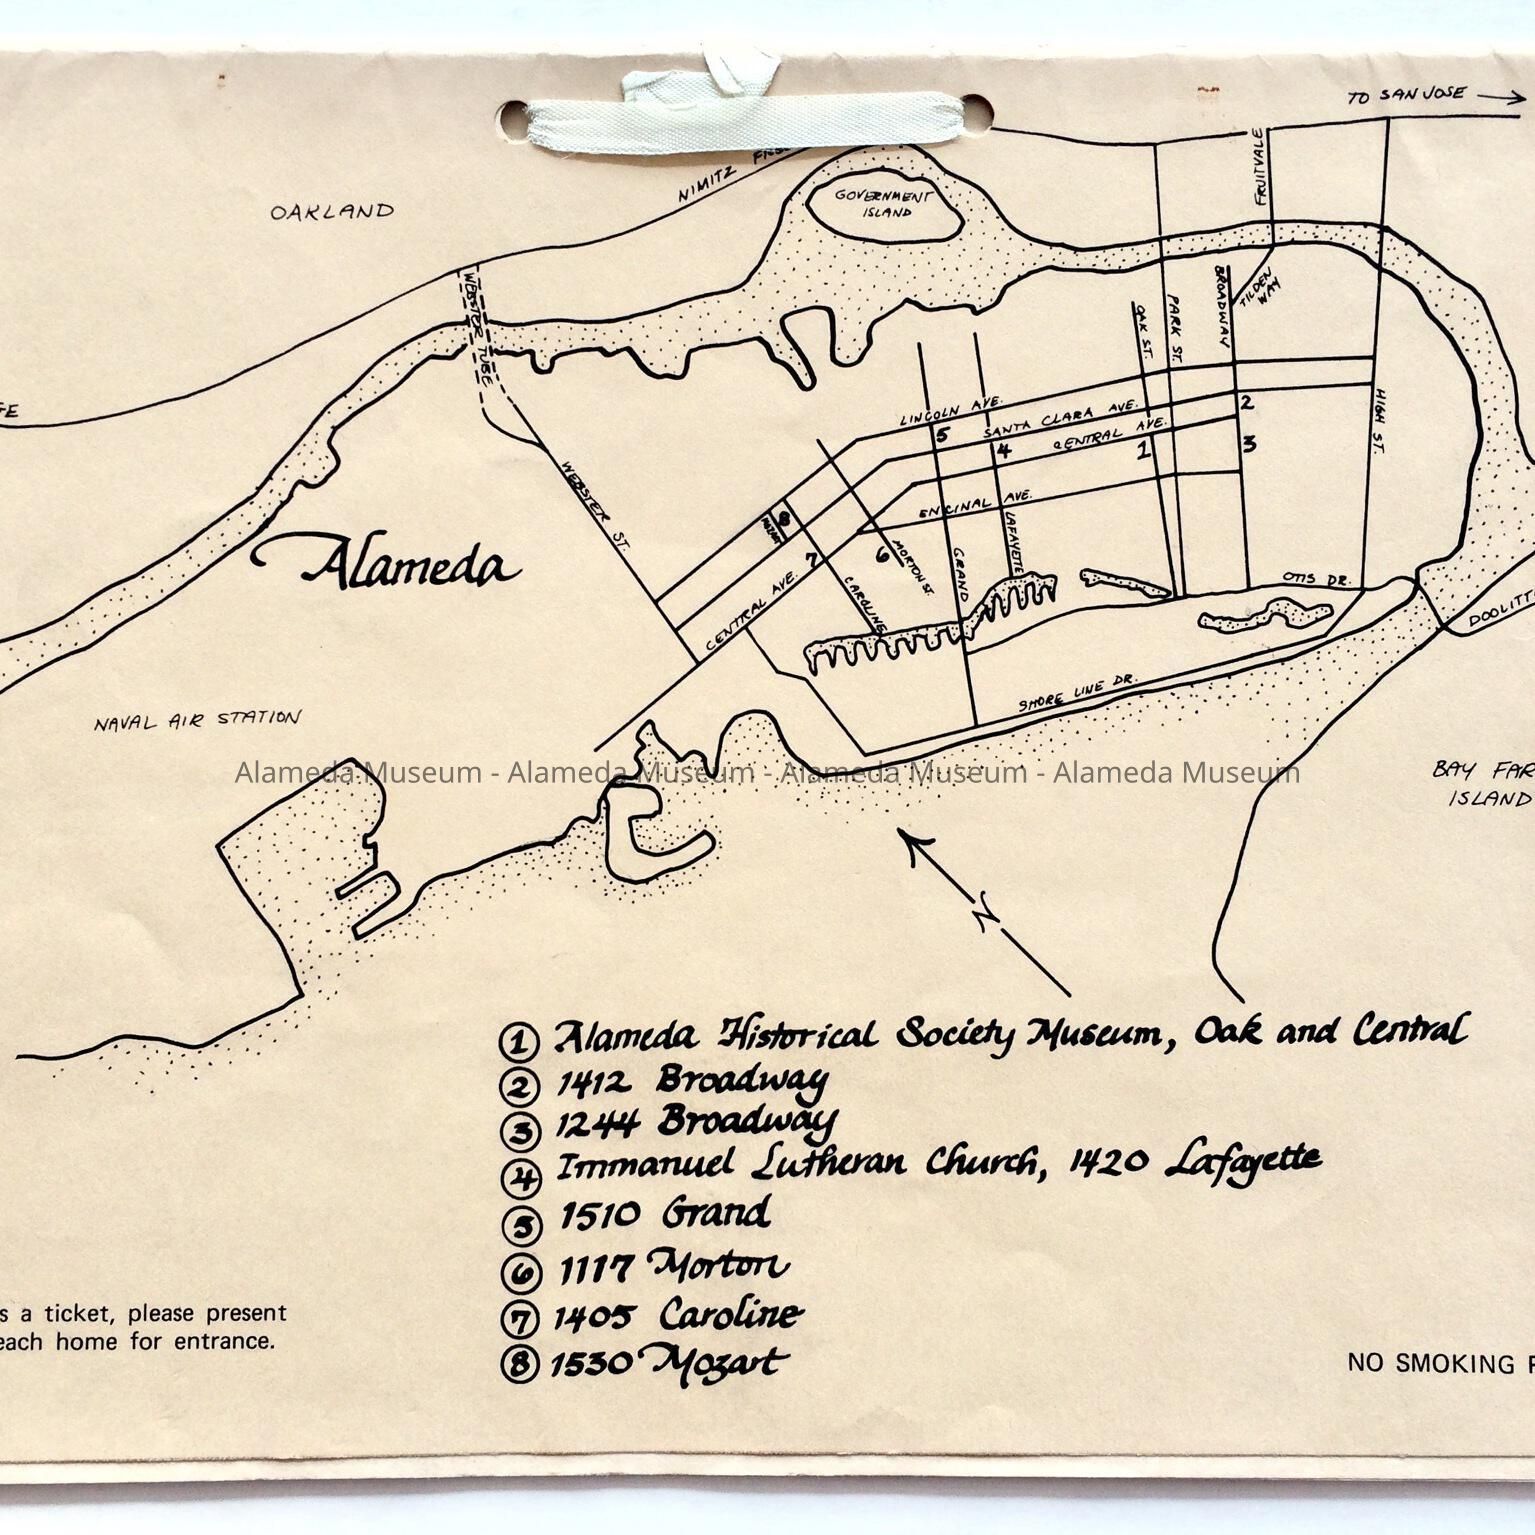 TO SAN JOSE
NIMITZ
FRUITVALE
OAKLAND
GOVERNMENT
ISLAND
WEBSTER TUBE
BROADWAY
TILDEN
WAY
OAK ST.
PARK ST.
LINCOLN AVE.
SANTA CLARA AVE.
CENTRAL AVE.
HIGH ST.
2
5
4
1
3
WEBSTER ST.
ENCINAL AVE.
MOZART
8
LAFAYETTE
7
6
MORTON ST.
GRAND
CAROLINE
Alameda
CENTRAL AVE.
OTIS DR.
SHORE LINE DR.
NAVAL AIR STATION
Alameda Museum - Alameda Museum - Alameda Museum - Alameda Museum
BAY FAR
ISLAND
N
1 Alameda Historical Society Museum, Oak and Central
2 1412 Broadway
3 1244 Broadway
4 Immanuel Lutheran Church, 1420 Lafayette
5 1510 Grand
6 1117 Morton
7 1405 Caroline
8 1530 Mozart
s a ticket, please present
each home for entrance.
NO SMOKING